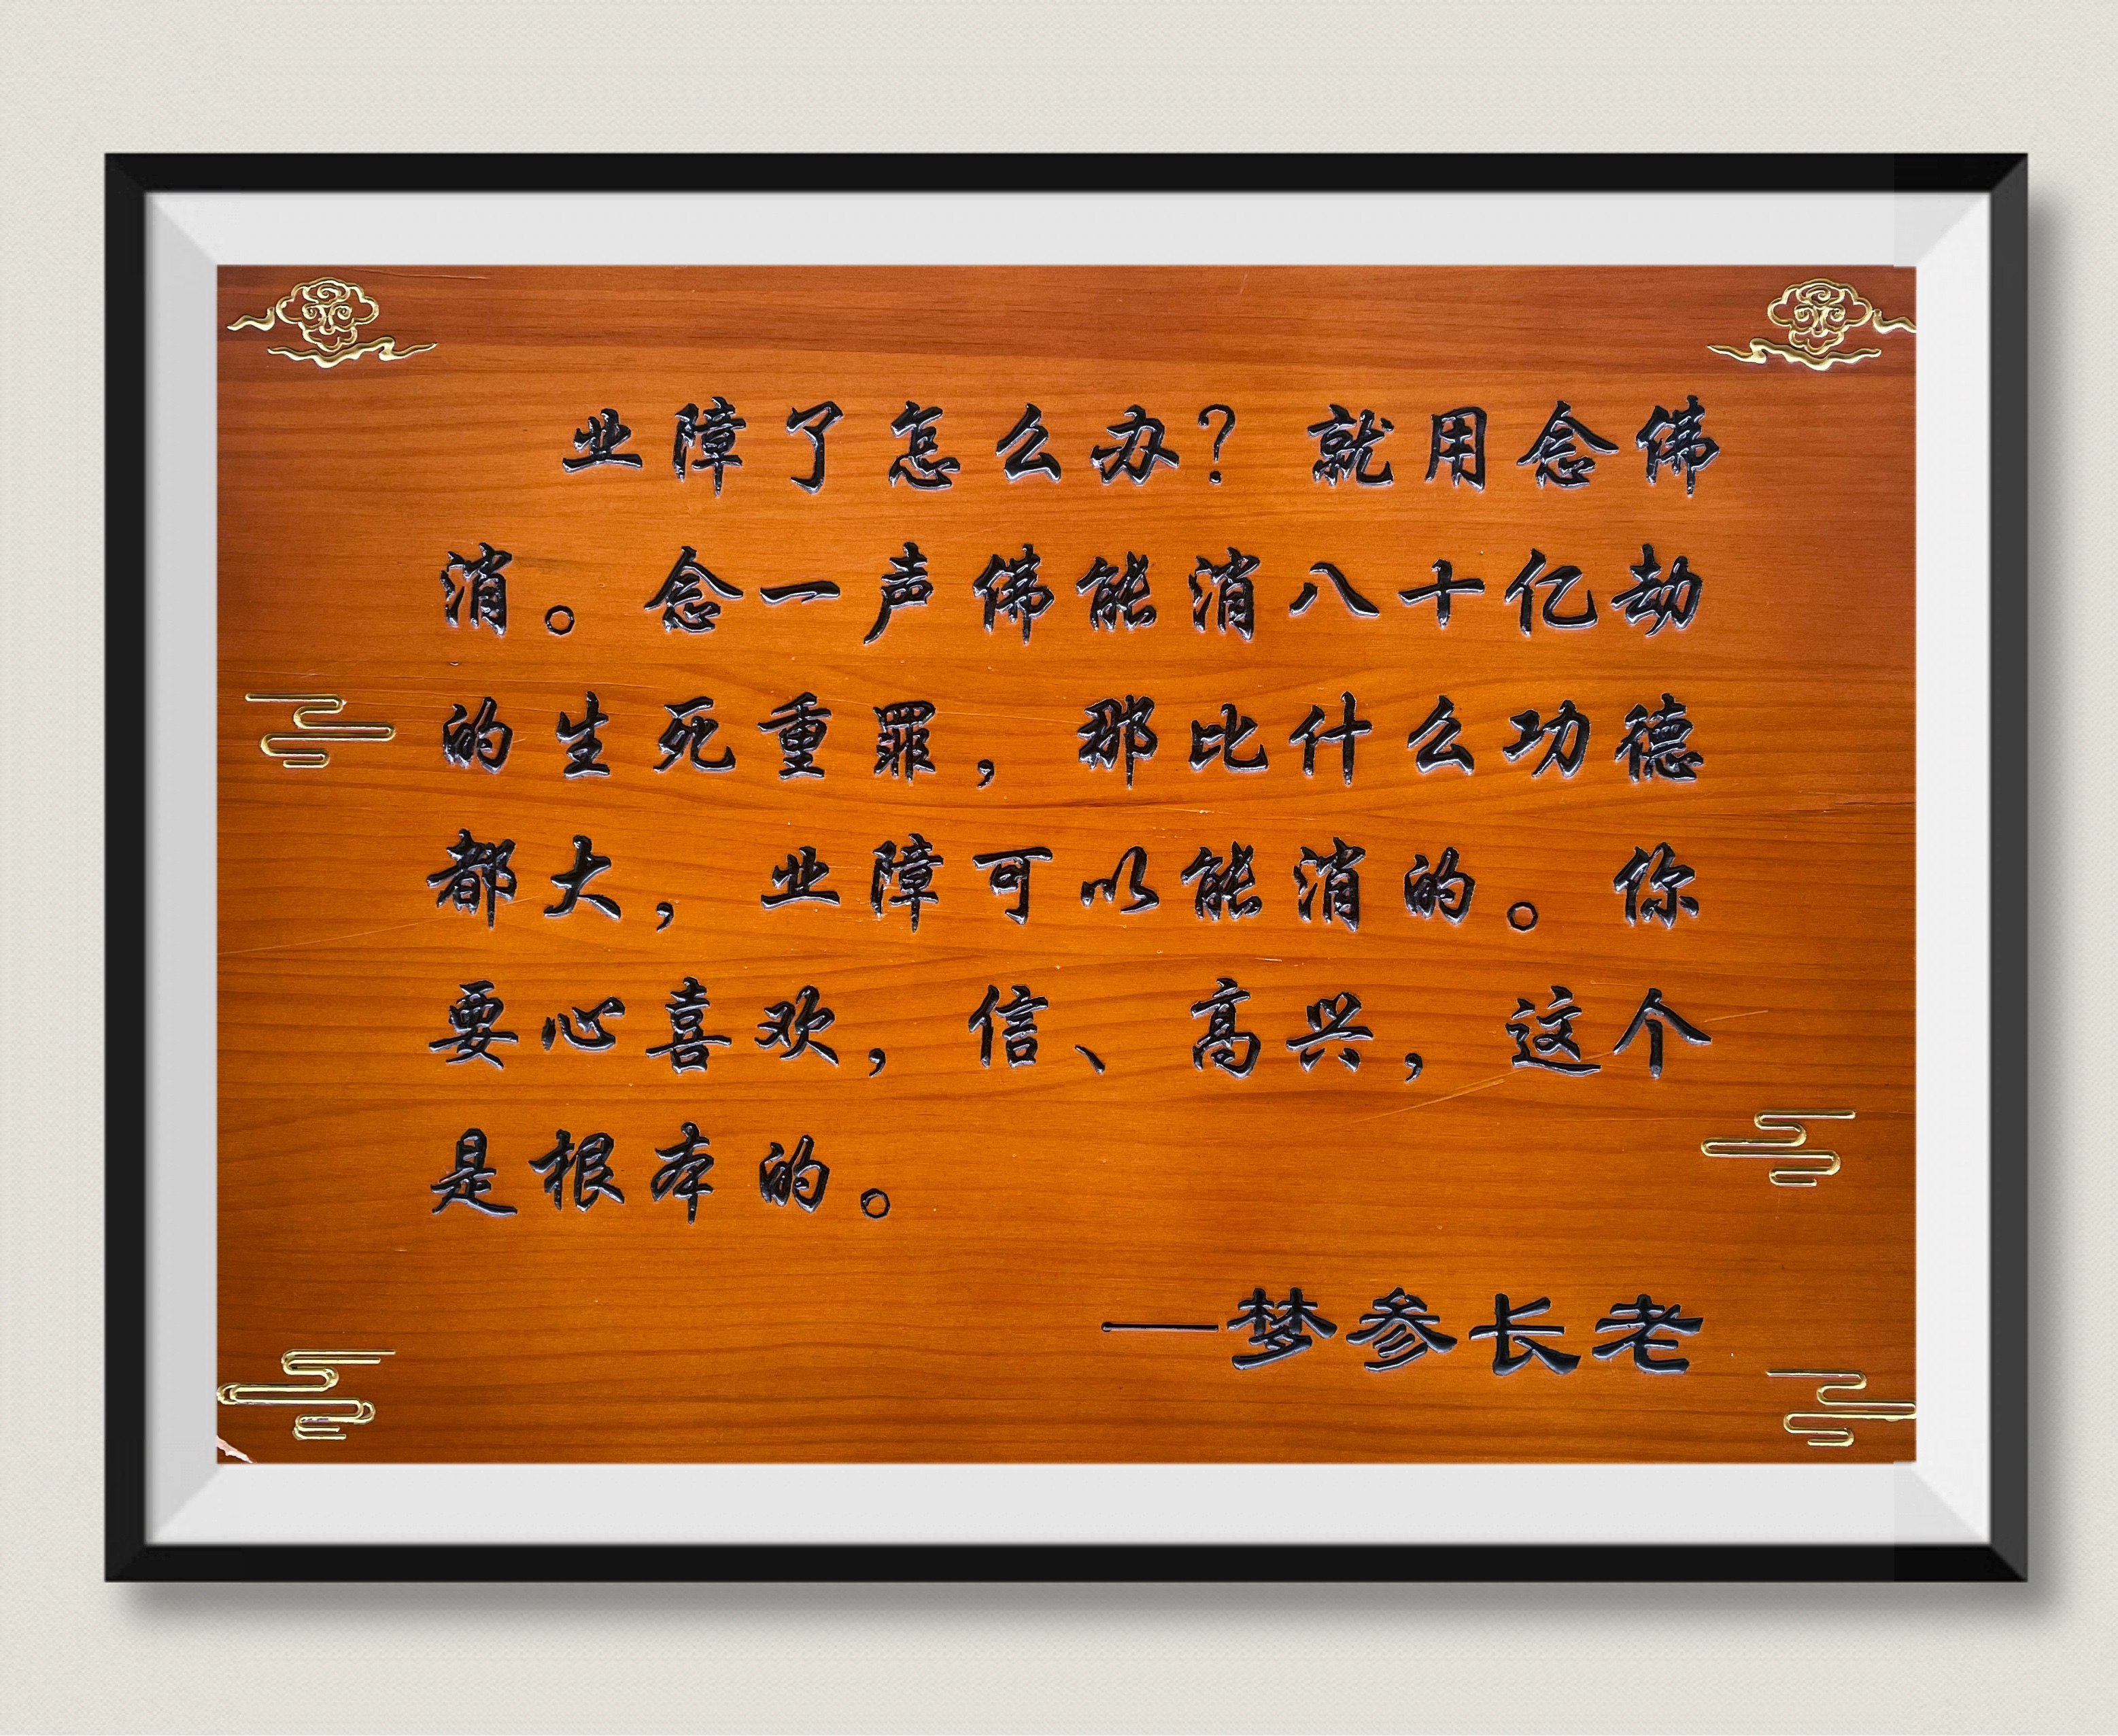 业障了怎么办？就用念佛
消。念一声佛能消八十亿劫
的生死重罪，那比什么功德
都大，业障可以能消的。你
要心喜欢，信、高兴，这个
是根本的。
—梦参长老